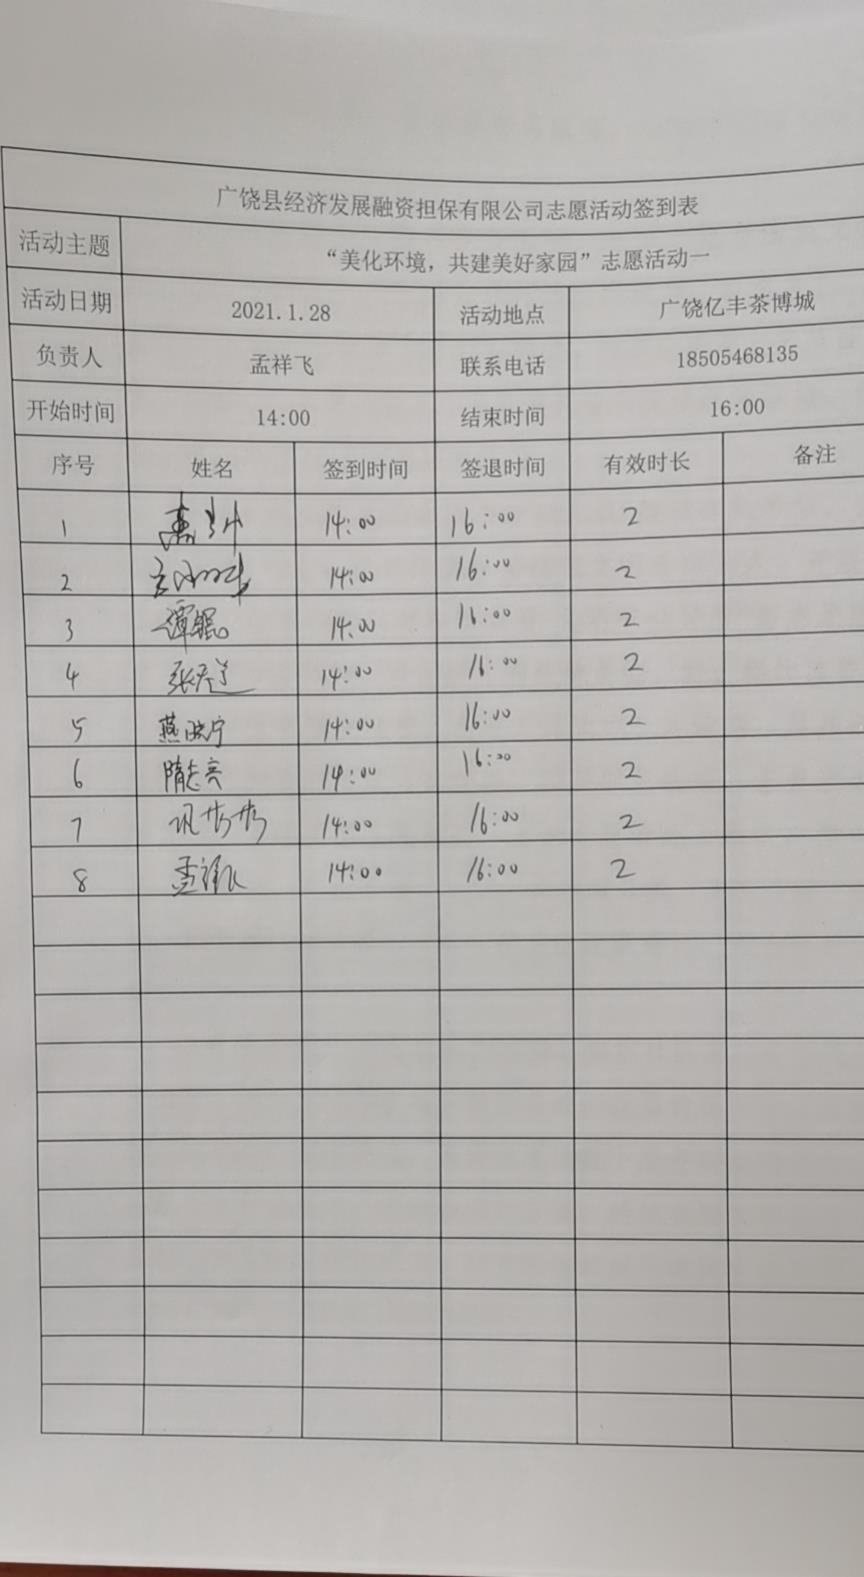 广饶县经济发展融资担保有限公司志愿活动签到表
活动主题 “美化环境，共建美好家园”志愿活动一
活动日期 2021.1.28 活动地点 广饶亿丰茶博城
负责人 孟祥飞 联系电话 18505468135
开始时间 14:00 结束时间 16:00
序号 姓名 签到时间 签退时间 有效时长 备注
1 14:00 16:00 2
2 14:00 16:00 2
3 谭锟 14:00 16:00 2
4 14:00 16:00 2
5 14:00 16:00 2
6 隋志亮 14:00 16:00 2
7 巩彬彬 14:00 16:00 2
8 孟祥飞 14:00 16:00 2